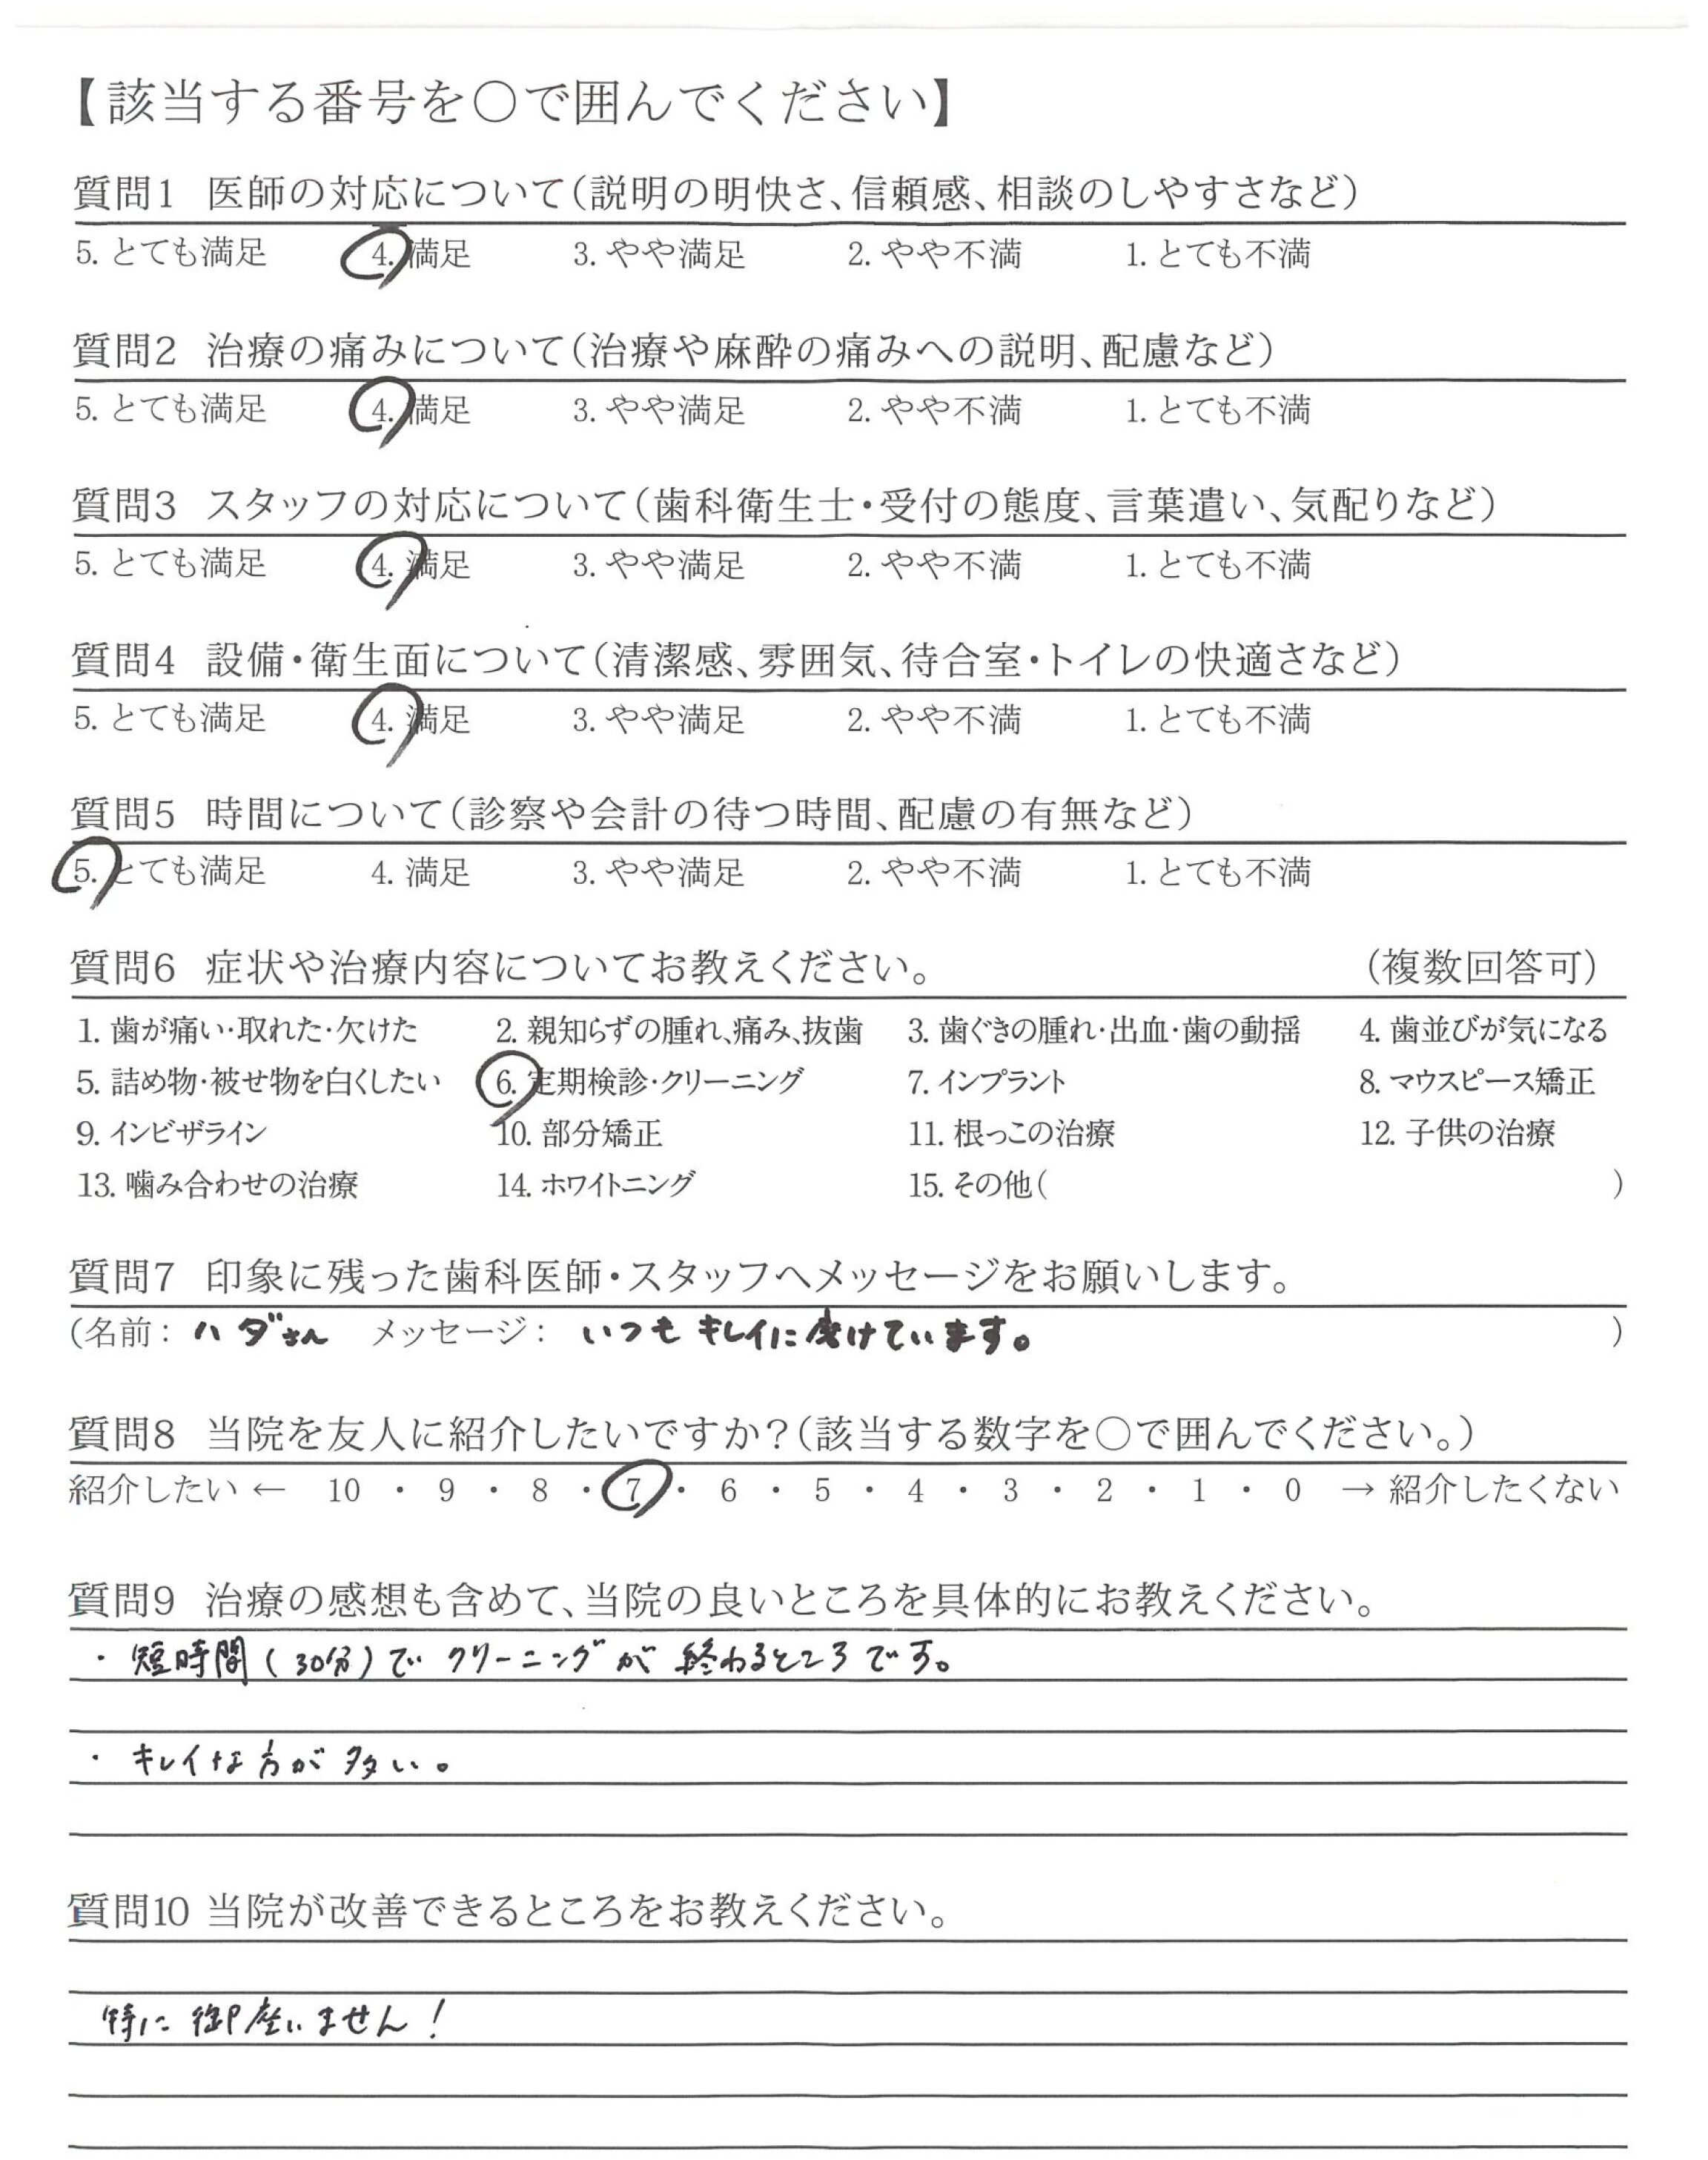 【該当する番号を○で囲んでください】
質問1 医師の対応について(説明の明快さ、信頼感、相談のしやすさなど)
5. とても満足 4. 満足 3. やや満足 2. やや不満 1. とても不満
質問2 治療の痛みについて(治療や麻酔の痛みへの説明、配慮など)
5. とても満足 4. 満足 3. やや満足 2. やや不満 1. とても不満
質問3 スタッフの対応について(歯科衛生士・受付の態度、言葉遣い、気配りなど)
5. とても満足 4. 満足 3. やや満足 2. やや不満 1. とても不満
質問4 設備・衛生面について(清潔感、雰囲気、待合室・トイレの快適さなど)
5. とても満足 4. 満足 3. やや満足 2. やや不満 1. とても不満
質問5 時間について(診察や会計の待つ時間、配慮の有無など)
5. とても満足 4. 満足 3. やや満足 2. やや不満 1. とても不満
質問6 症状や治療内容についてお教えください。 (複数回答可)
1. 歯が痛い・取れた・欠けた 2. 親知らずの腫れ、痛み、抜歯 3. 歯ぐきの腫れ・出血・歯の動揺 4. 歯並びが気になる
5. 詰め物・被せ物を白くしたい 6. 定期検診・クリーニング 7. インプラント 8. マウスピース矯正
9. インビザライン 10. 部分矯正 11. 根っこの治療 12. 子供の治療
13. 噛み合わせの治療 14. ホワイトニング 15. その他( )
質問7 印象に残った歯科医師・スタッフへメッセージをお願いします。
(名前: ハダさん メッセージ: いつもキレイに けています。 )
質問8 当院を友人に紹介したいですか?(該当する数字を○で囲んでください。)
紹介したい ← 10 ・ 9 ・ 8 ・ 7 ・ 6 ・ 5 ・ 4 ・ 3 ・ 2 ・ 1 ・ 0 → 紹介したくない
質問9 治療の感想も含めて、当院の良いところを具体的にお教えください。
・ 短時間(30分)で クリーニングが 終わるところです。
・ キレイな方が多い。
質問10 当院が改善できるところをお教えください。
特に御座いません!